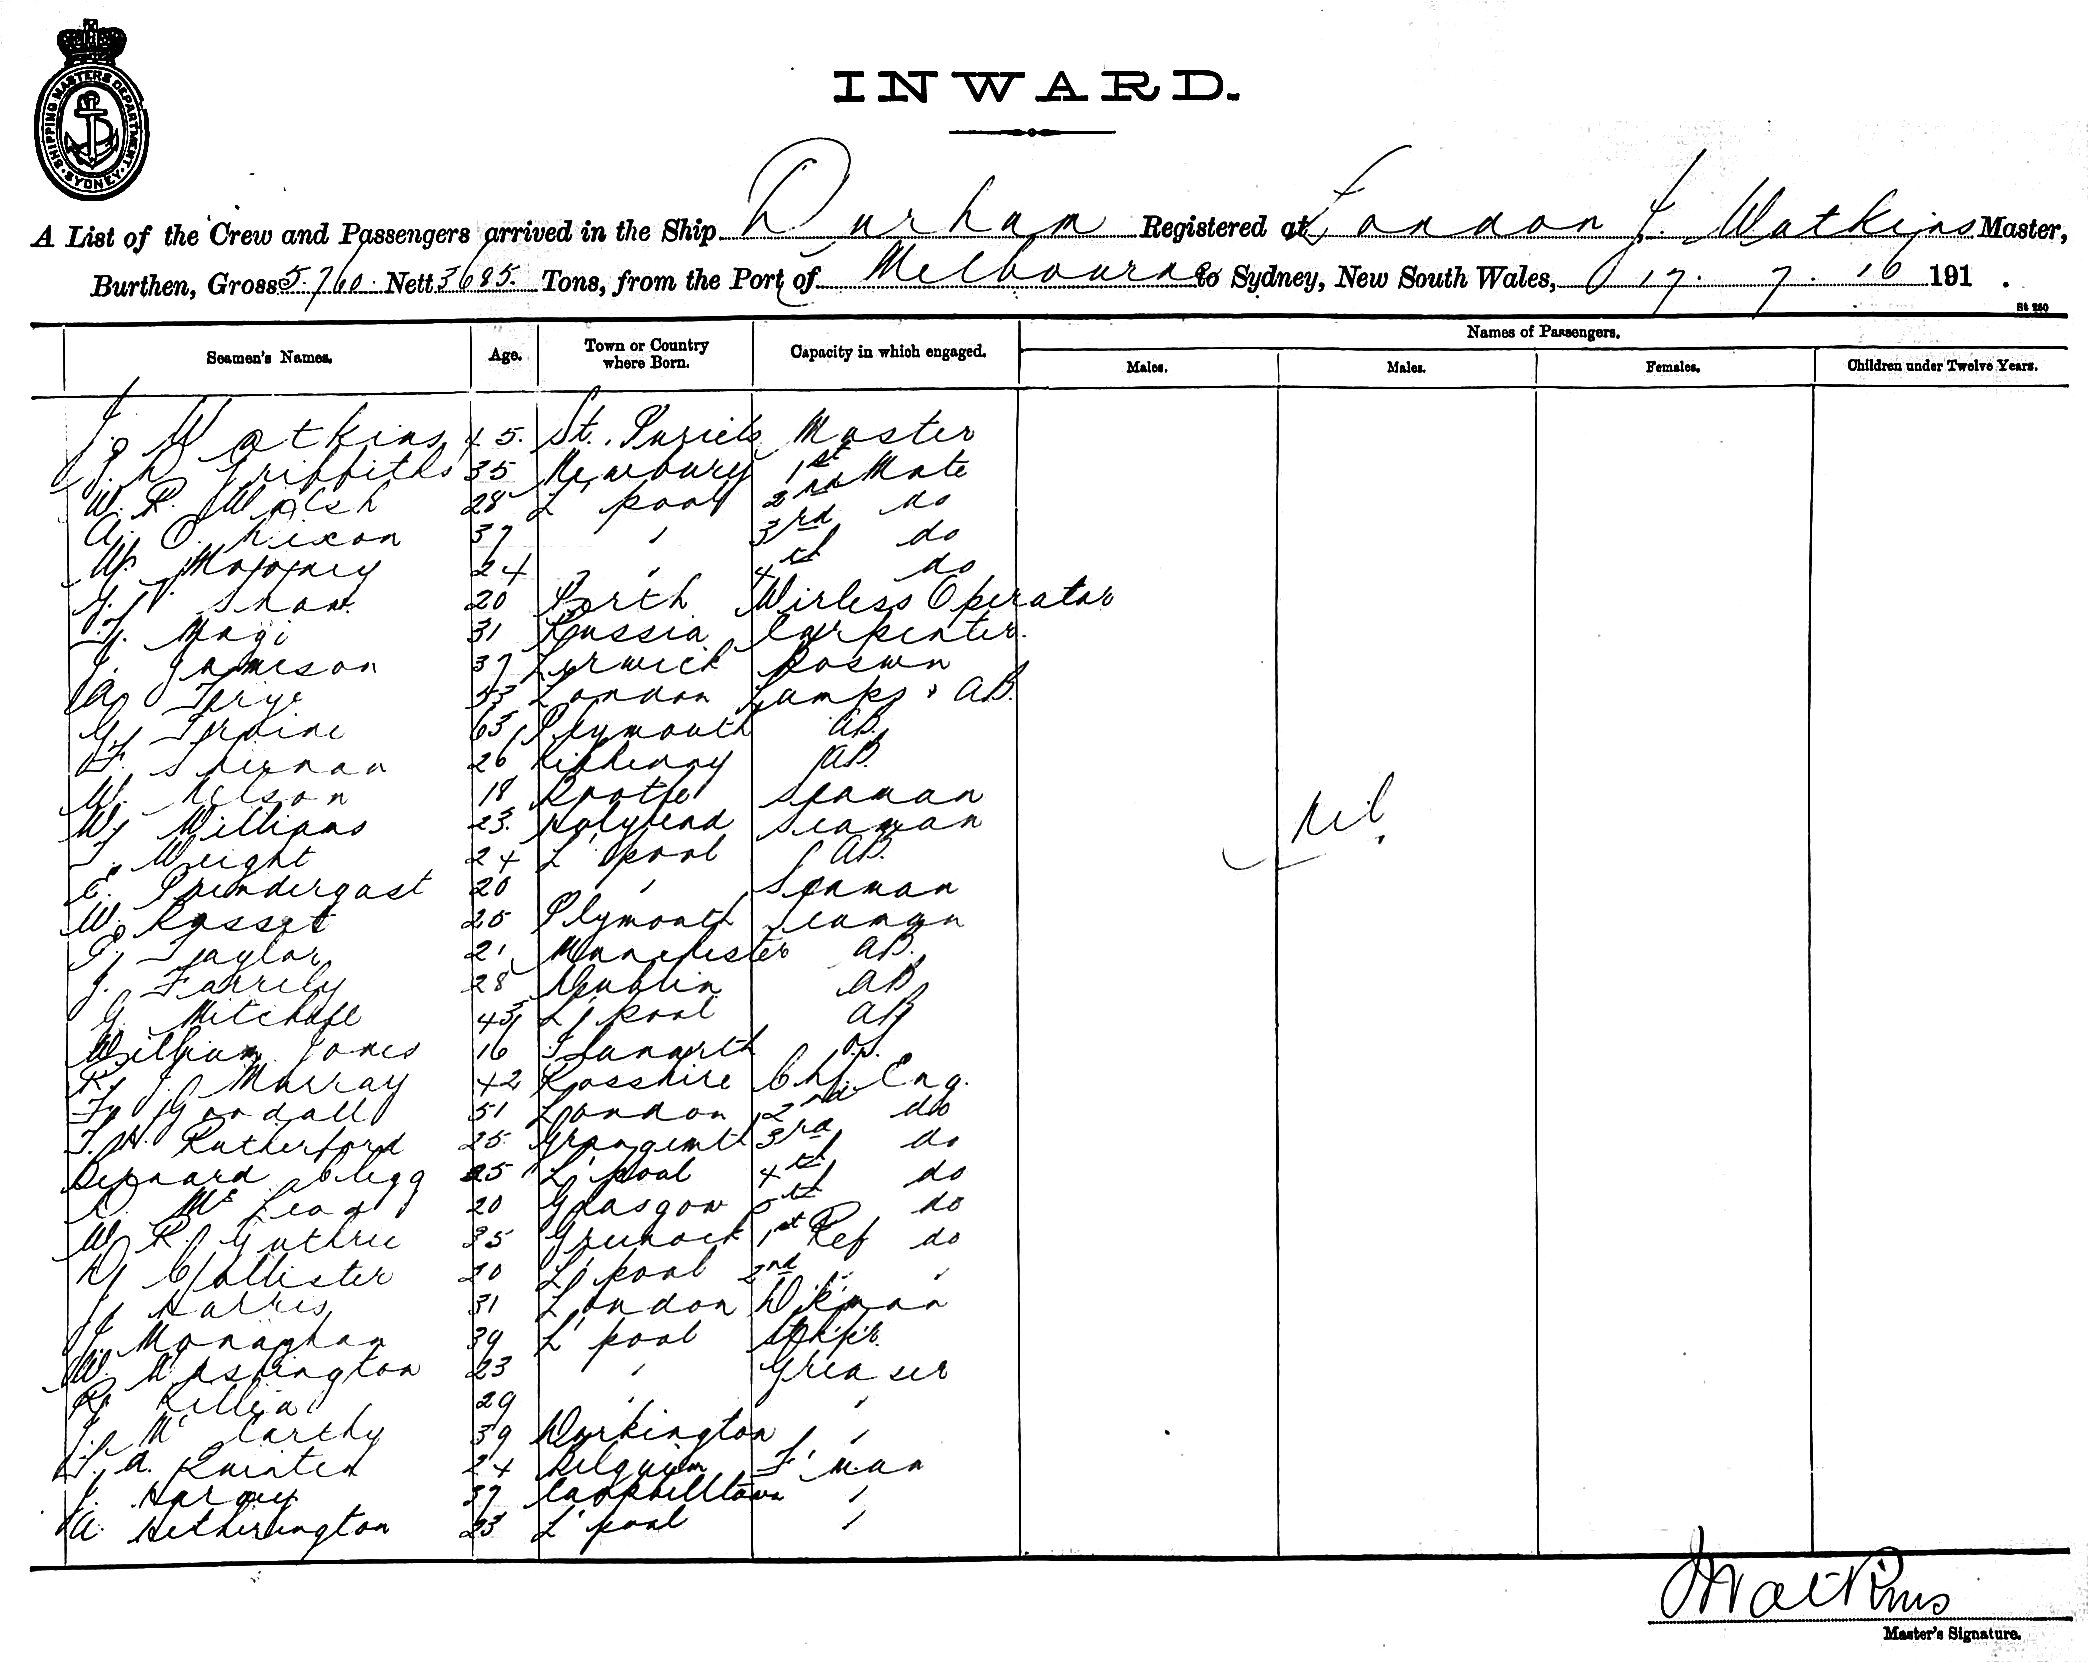 SHIPPING MASTERS DEPARTMENT SYDNEY
INWARD.
A List of the Crew and Passengers arrived in the Ship Durham Registered at London J. Watkins Master,
Burthen, Gross 5760 Nett 3685. Tons, from the Port of Melbourne to Sydney, New South Wales, 17. 7. 16 191 .
St 250
Names of Passengers.
Seamen's Names. Age. Town or Country where Born. Capacity in which engaged. Males. Males. Females. Children under Twelve Years.
J. Watkins 45. St. Master
Griffiths 35 Newbury 1st Mate
W. R. Walsh 28 L'pool 2nd do
A. O. Nixon 37 " 3rd do
W. 24 " 4th do
Shaw 20 Perth Wirless Operator
Magi 31 Russia Carpenter.
J. Jamieson 37 Lerwick Boswn
A. Frye London Lamps & AB.
G. 63 Plymouth AB.
F. 26 Kilkenny AB.
W. Nelson 18 Bootle Seaman
W. Williams 23. Holyhead Seaman
Nil.
T. Wright 24 L'pool AB.
E. Prendergast 20 " Seaman
W. 25 Plymouth Seaman
Taylor 21 Manchester AB.
J. Farrely 28 Dublin AB
G. Mitchell 43 L'pool AB
William Jones 16 OS.
R. J. Murray 42 Rosshire Chf. Eng.
Goodall 51 London 2nd do
T. H. Rutherford 25 Grangemth 3rd do
Bernard Clegg 25 L'pool 4th do
D. McLeod 20 Glasgow 5th do
W. R. Guthrie 35 Greenock 1st Ref do
Collister 20 L'pool 2nd " "
J. Harris 31 London D'k'man
J. Monaghan 39 L'pool St'k'p'r.
W. Washington 23 " Greaser
R. 29 " "
J. McCarthy 39 Workington "
A. Quinten 24 Belguim F'man
J. Harvey 37 Campbelltown "
A. Hetherington 23 L'pool "
J Watkins
Master's Signature.